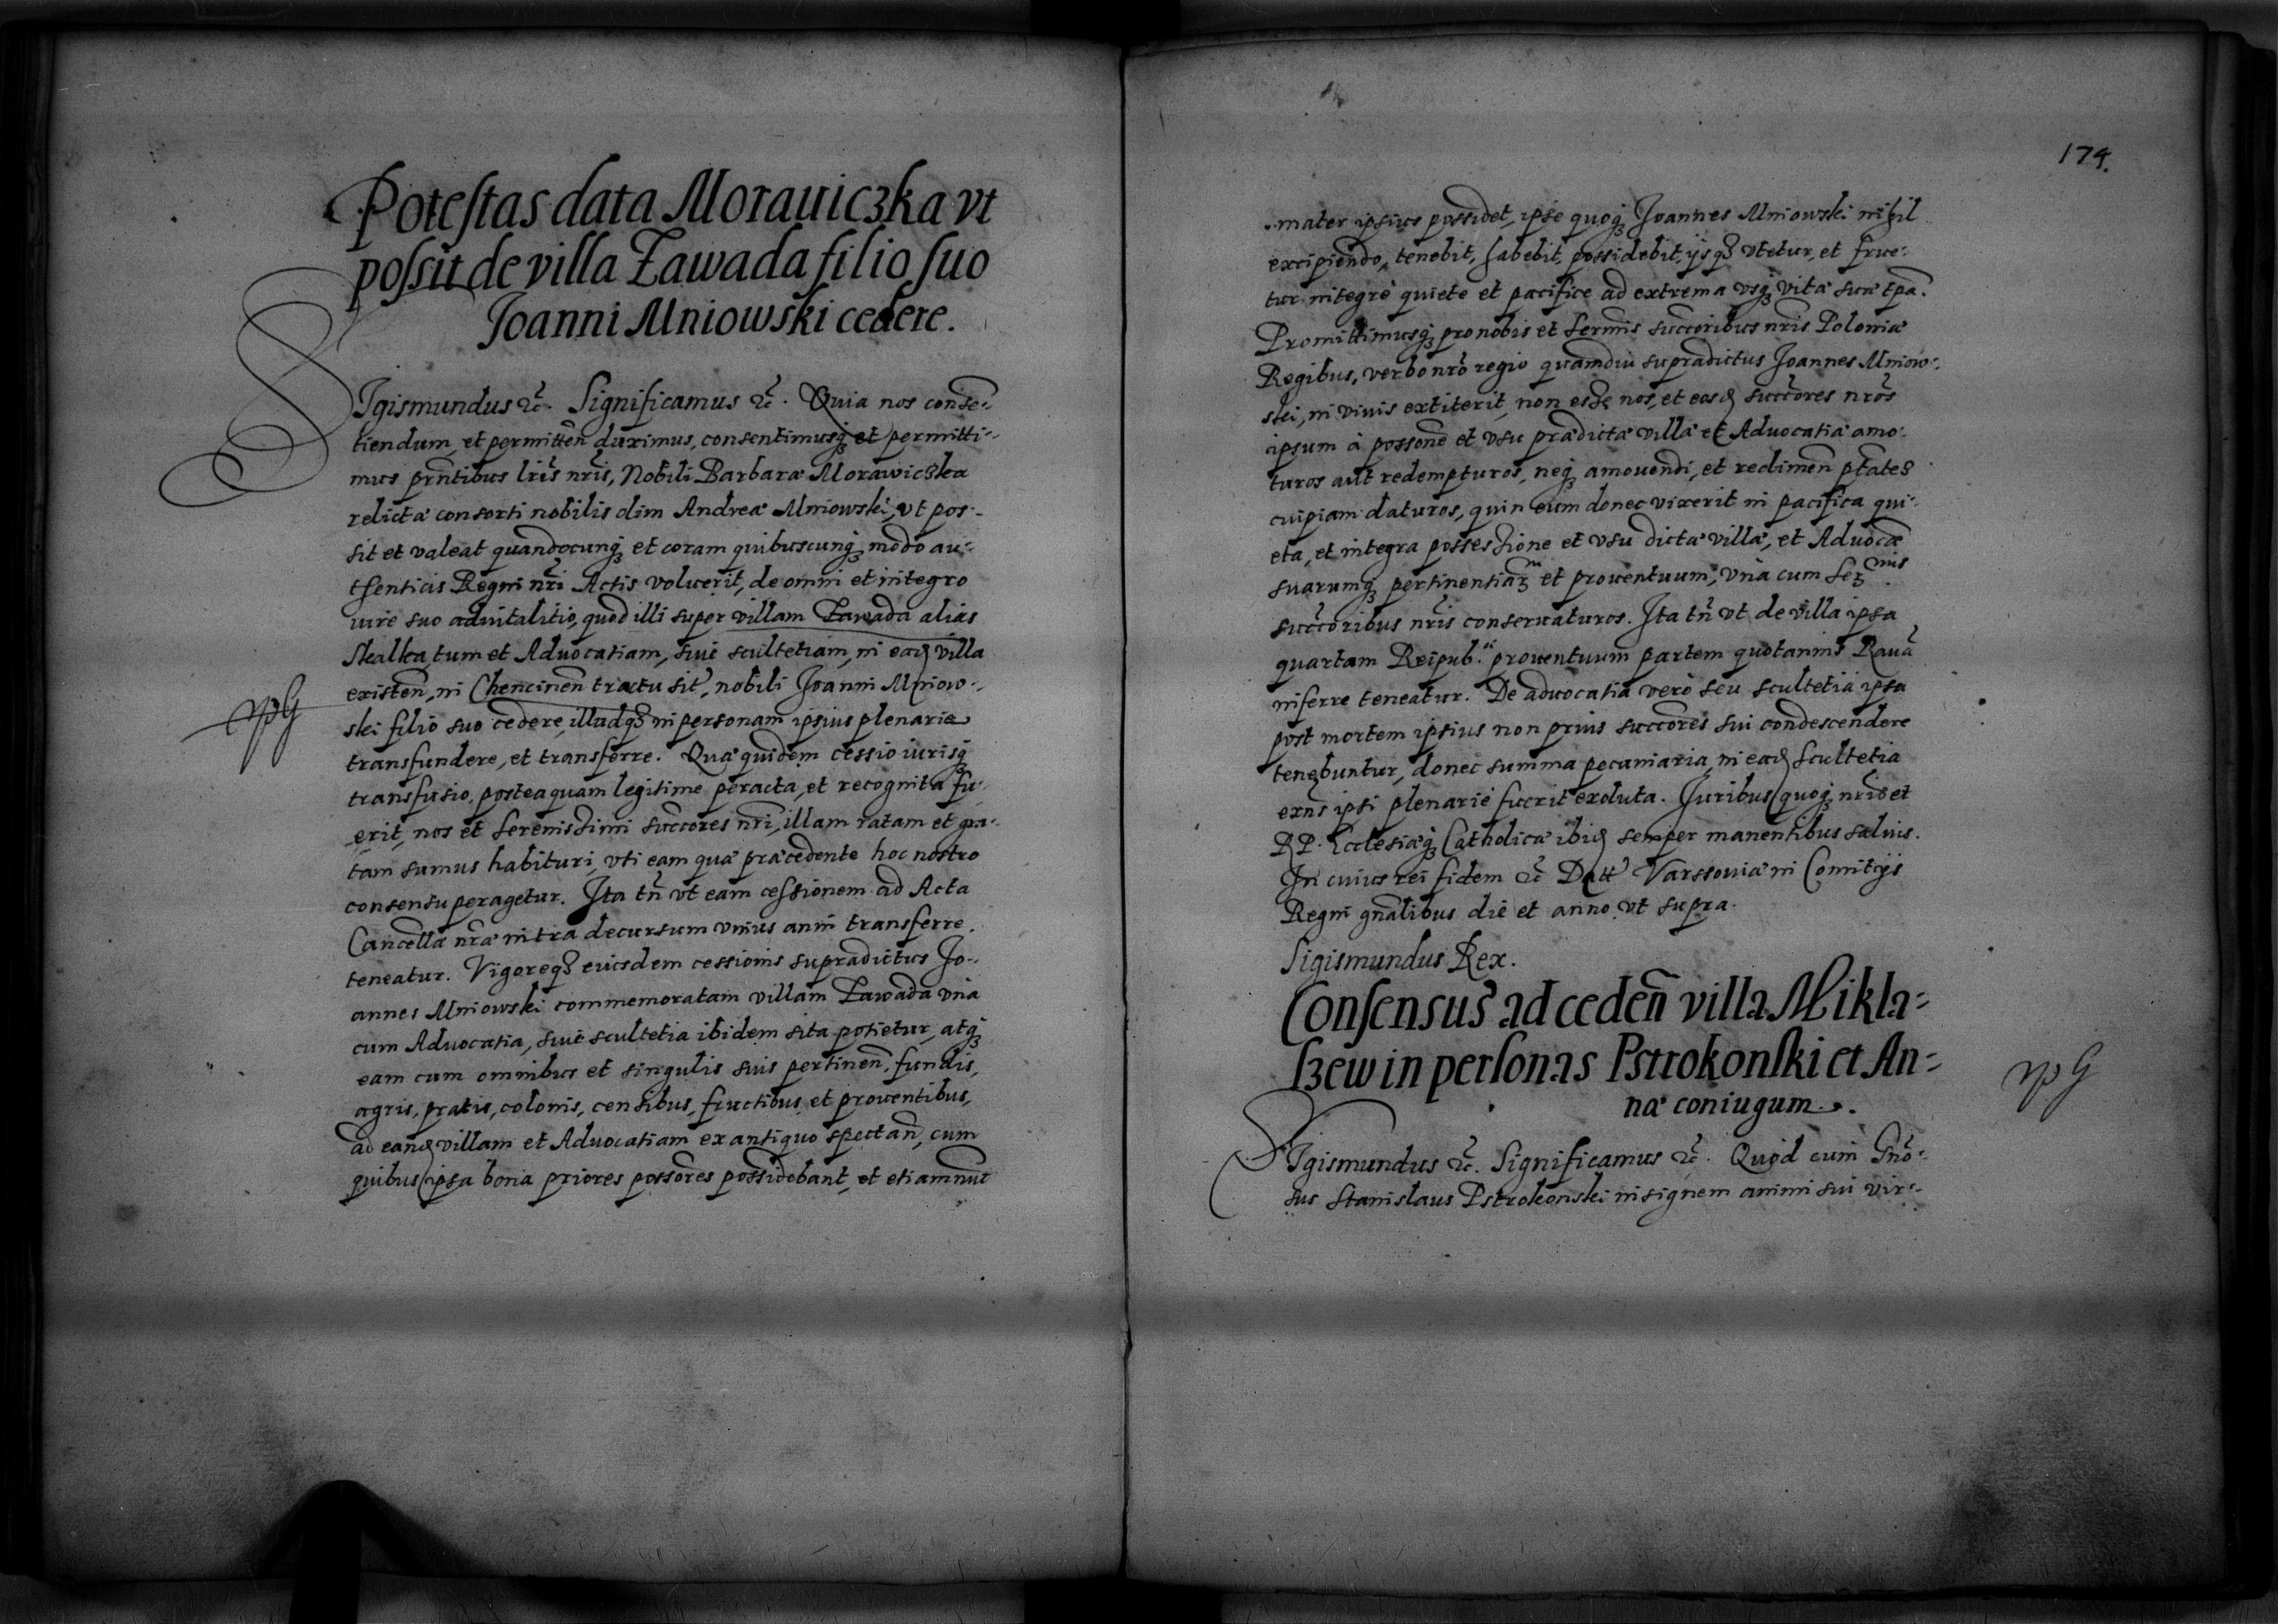 Potestas data Morauiczka vt
possit de villa Zawada filio suo
Joanni Mniowski cedere.
SIgismundus &c̃. Significamus &c̃. Quia nos conse-
tiendum, et permitteñ duximus, consentimusq; et permitti-
mus prñtibus lris̃ nris̃, Nobili Barbaræ Morawiczka
relictæ consorti nobilis olim Andreæ Mniowski, vt pos-
sit et valeat quandocunq; et coram quibuscunq; modo au-
thenticis Regni nrĩ Actis voluerit, de omni et integro
iure suo aduitalitio, quod illi super villam Zawada alias
Skalka, tum et Aduocatiam, siue scultetiam, in eadẽ villa
existeñ, in Chencineñ tractu sit̃, nobili Joanni Mniow-
ski filio suo cedere, illudq3 in personam ipsius plenarie
transfundere, et transferre. Quæ quidem cessio iurisq;
transfusio, posteaquam legitime peracta, et recognita fu-
erit, nos et Serenissimi succores̃ nrĩ, illam ratam et gra-
tam sumus habituri, vti eam quæ præcedente hoc nostro
consensu peragetur. Ita tñ vt eam cessionem ad Acta
Cancellæ nræ̃ intra decursum vnius anni transferre
teneatur. Vigoreq3 eiusdem cessionis supradictus Jo-
annes Mniowski commemoratam villam Zawada vna
cum Aduocatia, siue scultetia ibidem sita potietur, atq;
eam cum omnibus et singulis suis pertineñ, fundis,
agris, pratis, colonis, censibus, fructibus, et prouentibus,
ad eandẽ villam et Aduocatiam ex antiquo spectañ, cum
quibus ipsa bona priores possores̃ possidebant, et etiamnũc
npG
174.
mater ipsius possidet, ipse quoq; Joannes Mniowski nihil
excipiendo, tenebit, habebit, possidebit, ijsq3 vtetur, et frue-
tur integrè quiete et pacifice ad extrema vsq; vitæ suæ tpã.
Promittimusq; pro nobis et Sermis̃ succoribus̃ nris̃ Poloniæ
Regibus, verbo nrõ regio quamdiu supradictus Joannes Mniow-
ski, in viuis extiterit, non esse nos, et eosdẽ succores̃ nros̃
ipsum à possone̅ et vsu prædictæ villæ et Aduocatiæ amo-
turos aut redempturos, neq; amouendi, et redimeñ ptates̃
cuipiam daturos, quin eum donec vixerit in pacifica qui-
eta, et integra possessione et vsu dictæ villæ, et Aduocæ̃
suarumq; pertinentiaꝝ et prouentuum, vna cum Ser̃mis
succoribus̃ nris̃ conseruaturos. Ita tñ vt de villa ipsa
quartam Reipub. prouentuum partem quotannis Rauã
inferre teneatur. De aduocatia verò seu scultetia ipsa
post mortem ipsius non prius succores̃ sui condescendere
tenebuntur, donec summa pecuniaria, in eadẽ Scultetia
exñs ipsi plenariè fuerit exoluta. Juribus quoq; nris̃ et
RP. Ecclesiæq; Catholicæ ibidẽ semper manentibus saluis.
In cuius rei fidem &c̃ Datt̃ Varssouiæ in Comitijs
Regni gnalibus̃ die et anno vt supra.
Sigismundus Rex.
Consensus ad cedeñ villa Mikla-
szew in personas Pstrokonski et An-
næ coniugum.
SIgismundus &c̃. Significamus &c̃. Quod cum Gño-
sus Stanislaus Pstrokonski insignem animi sui vir-
npG